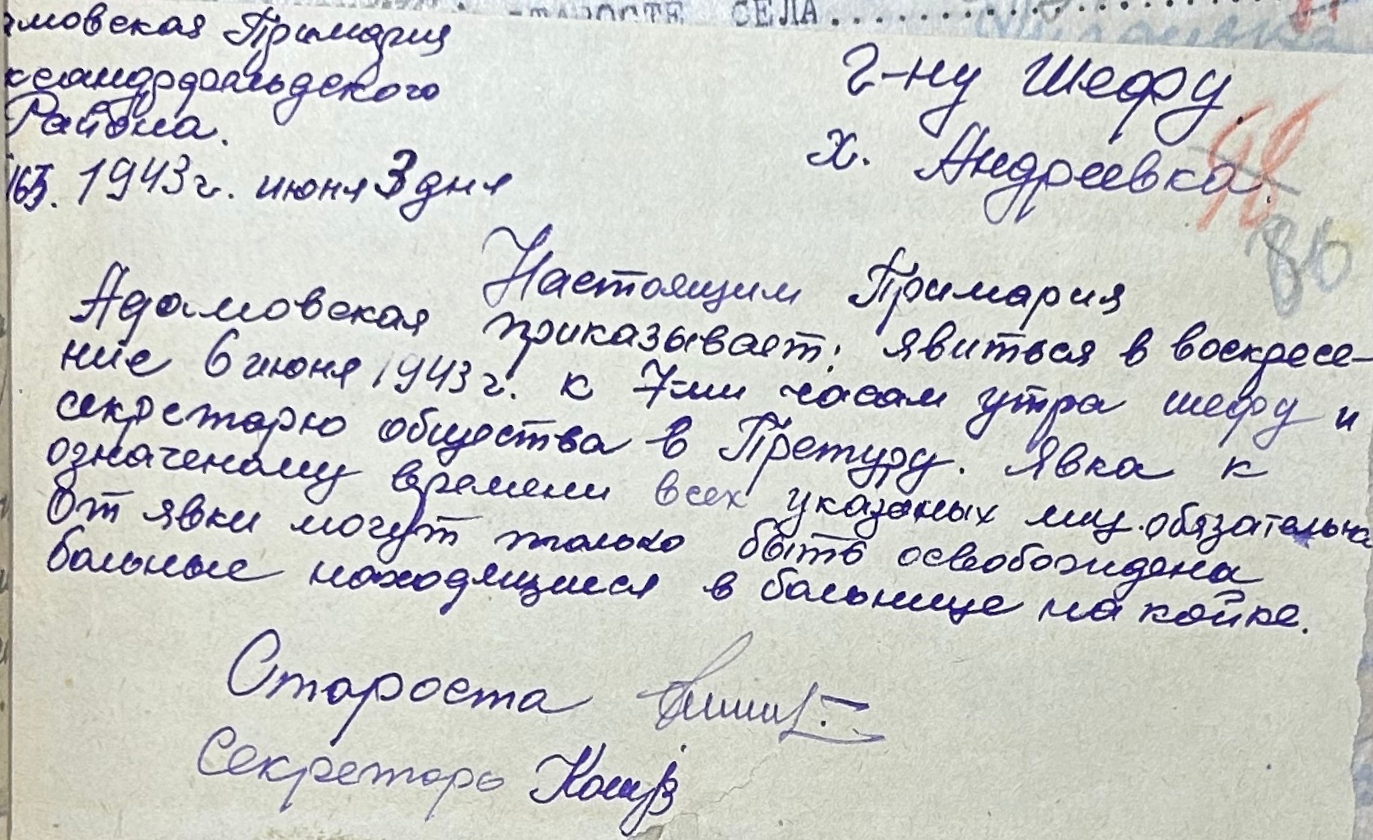 СТАРОСТЕ СЕЛА
амовская Примария
ксандрфельдского
Района.
г-ну Шефу
х. Андреевка.
98
86
165. 1943 г. июня 3 дня
Настоящим Примария
Адамовская приказывает: явиться в воскресе-
ние 6 июня 1943 г. к 7-ми часам утра шефу и
секретарю общества в Претуру. Явка к
означеному времени всех указаных лиц обязательна
От явки могут только быть освобождена
больные находящиеся в больнице на койке.
Староста
Секретарь